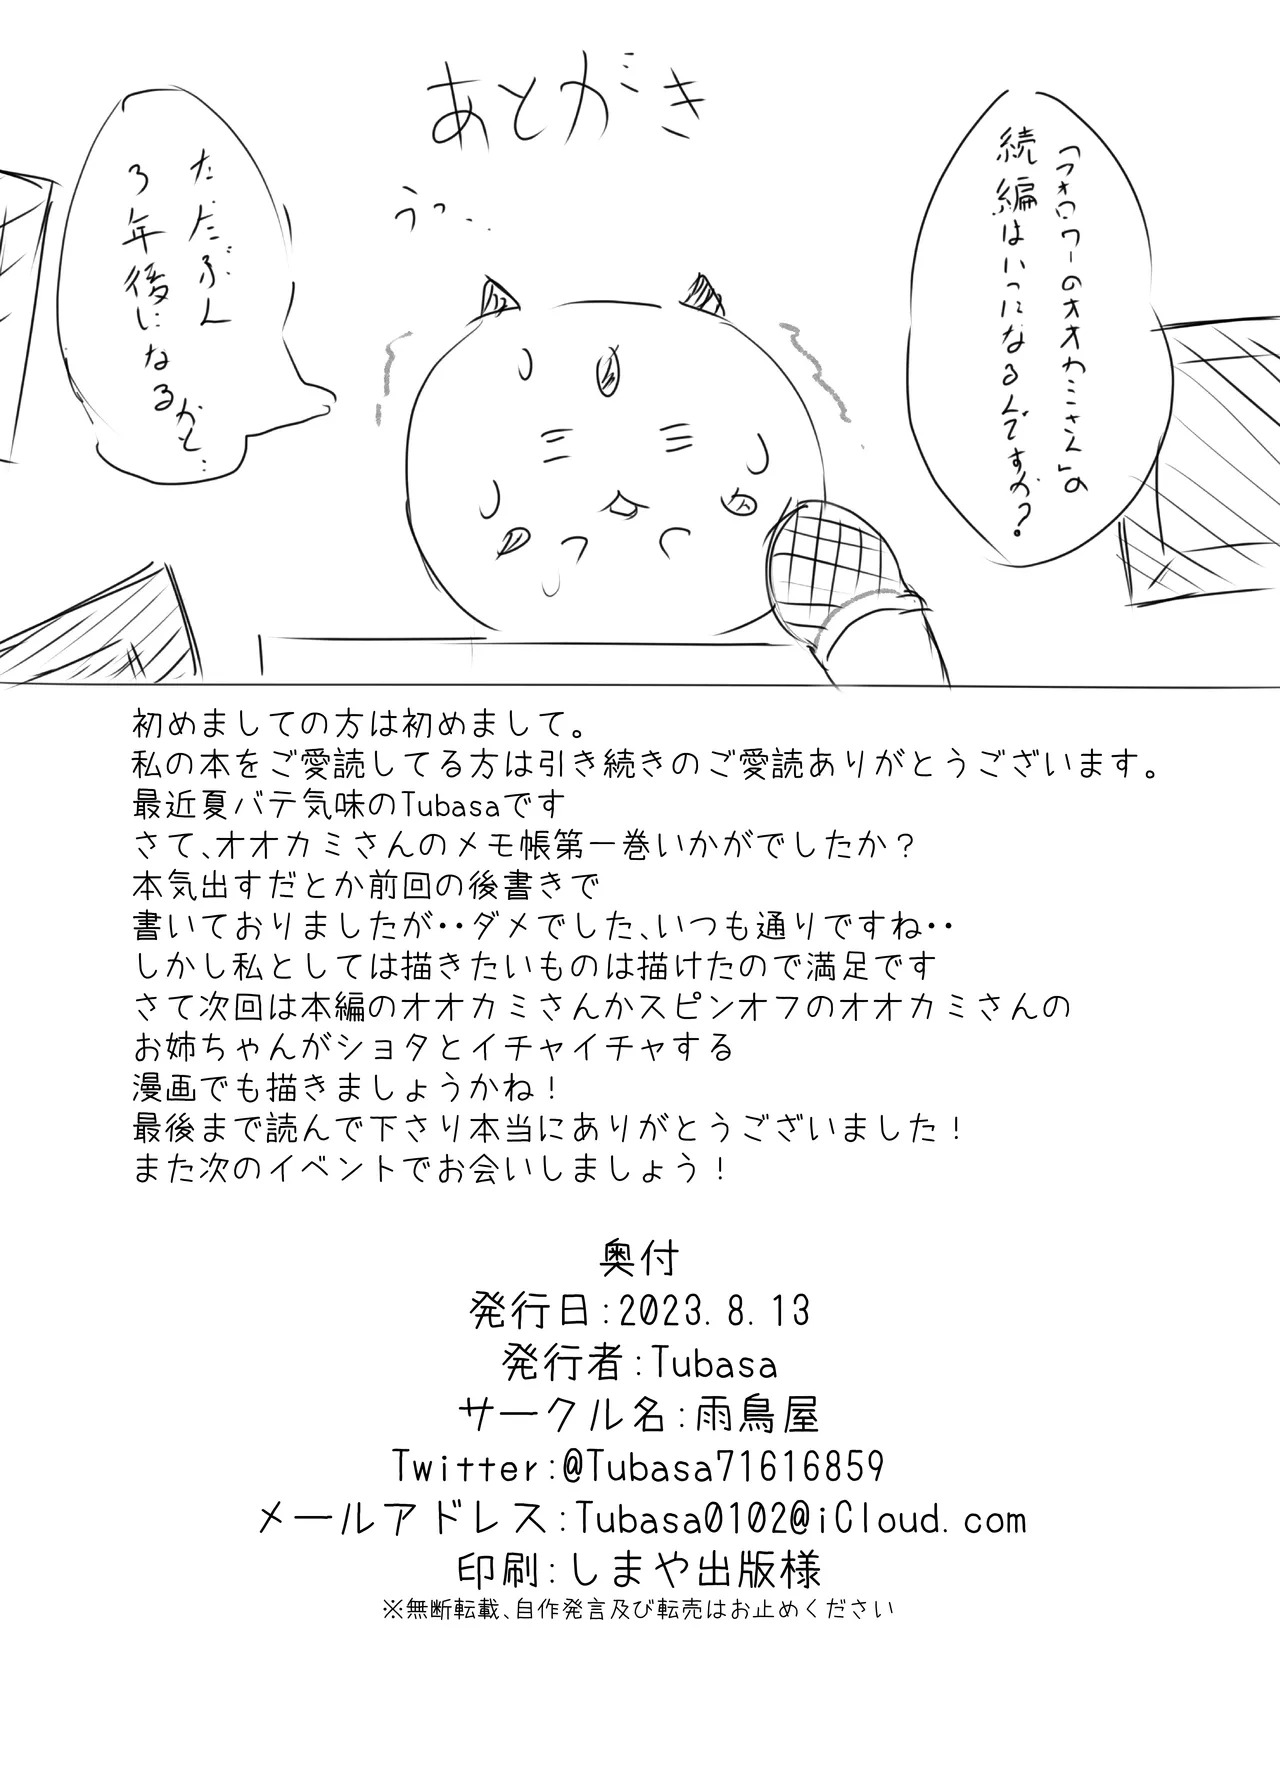 あとがき
「フォロワーのオオカミさん」の
続編はいつになるんですか?
うっ..
たたぶん
3年後になるかと...
初めましての方は初めまして。
私の本をご愛読してる方は引き続きのご愛読ありがとうございます。
最近夏バテ気味のTubasaです
さて、オオカミさんのメモ帳第一巻いかがでしたか?
本気出すだとか前回の後書きで
書いておりましたが・・ダメでした、いつも通りですね・・
しかし私としては描きたいものは描けたので満足です
さて次回は本編のオオカミさんかスピンオフのオオカミさんの
お姉ちゃんがショタとイチャイチャする
漫画でも描きましょうかね!
最後まで読んで下さり本当にありがとうございました!
また次のイベントでお会いしましょう!
奥付
発行日:2023.8.13
発行者:Tubasa
サークル名:雨鳥屋
Twitter:@Tubasa71616859
メールアドレス:Tubasa0102@iCloud.com
印刷:しまや出版様
※無断転載、自作発言及び転売はお止めください